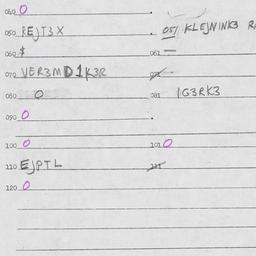 040 O
050 REJT3X
051 KLEJNINK3
060 $
061 —
070 VER3MD1K3R
071
080 O
081 IG3RK3
090 O
100 O
101 O
110 EJPTL
111
120 O